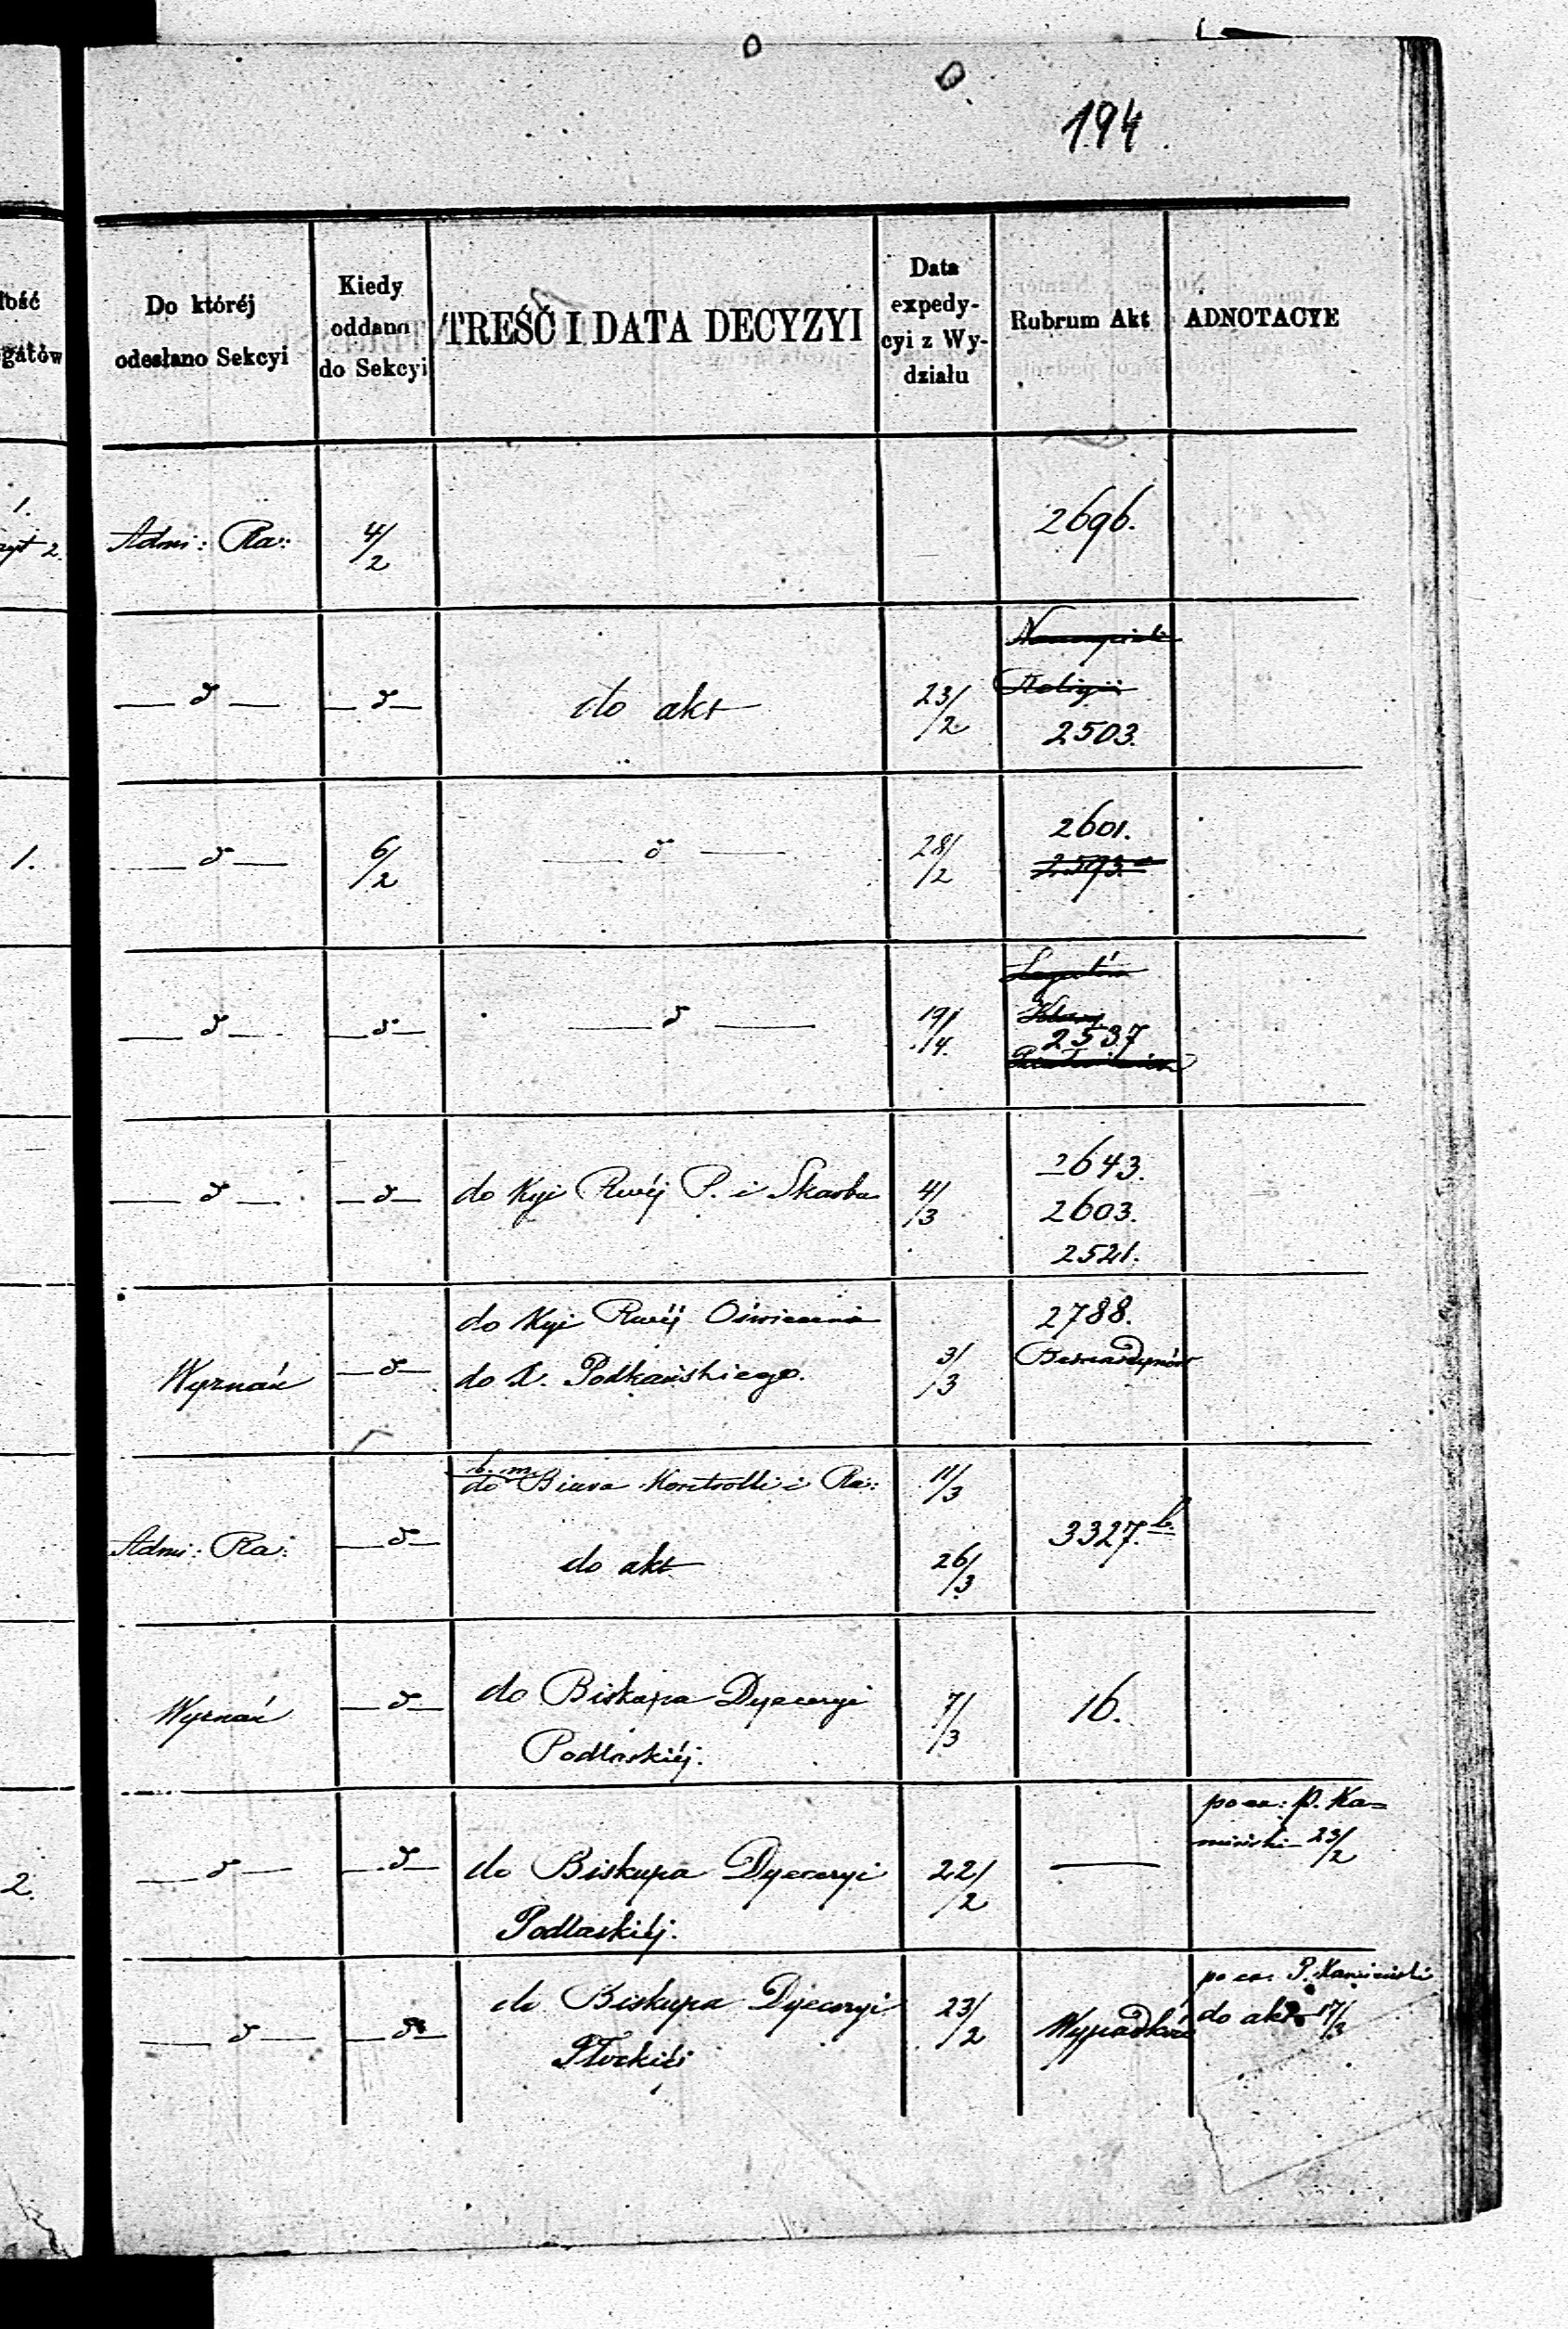 194.
łość
gatów
Do któréj
odesłano Sekcyi
Kiedy
oddano
do Sekcyi
TREŚĆ I DATA DECYZYI
Data
expedy-
cyi z Wy-
działu
Rubrum Akt
ADNOTACYE
1.
2.
Admi: Ra:
4/2
2696.
— d —
— d —
do akt
23/2
Religii
2503.
1.
— d —
6/2
— d —
28/2
2601.
2593.
— d —
— d —
— d —
19/4.
2537
— d —
— d —
do Kyi Rwéj P. i Skarbu
4/3
2643.
2603.
2521.
Wyznań
— d —
do Kyi Rwéj Oświecenia
do X. Podkańskiego.
3/3
2788.
Bernardynów
Admi: Ra:
— d —
b. m.
do Biura Kontrolli i Ra:
11/3
do akt
26/3
3327. b.
Wyznań
— d —
do Biskupa Dyecezyi
Podlaskiéj.
7/3
16.
2.
— d —
— d —
do Biskupa Dyecezyi
Podlaskiéj.
22/2
—
P. Ka=
miński 23/2
— d —
— d —
do Biskupa Dyecezyi
Płockiéj
23/2
Wypadków
P. Kamiński
do akt 17/3